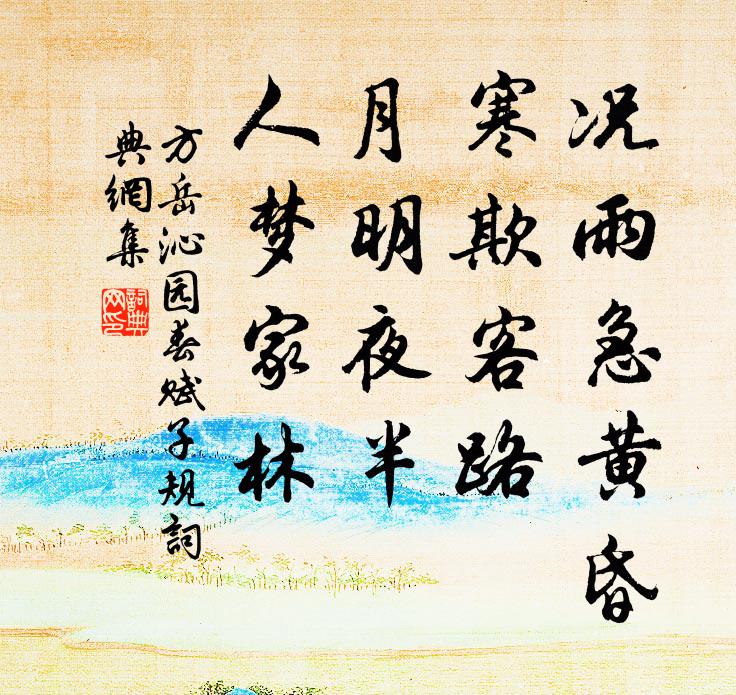 况雨急黄昏
寒欺客路
月明夜半
人梦家林
方岳沁园春赋子规詞
典網集
詞典網印